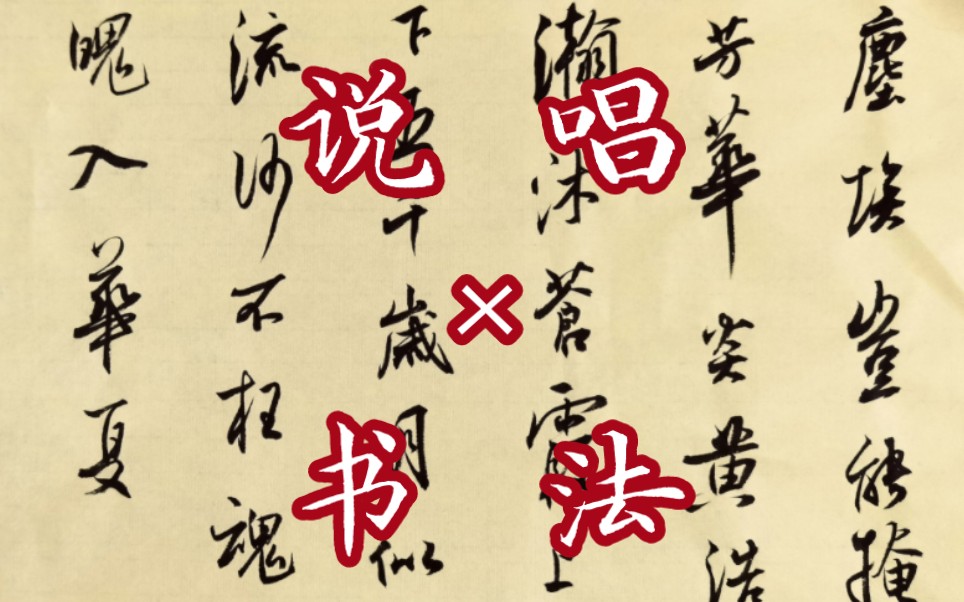 说唱
×
书法
塵埃豈能掩
芳華炎黄浩
瀚沐蒼上
下五千歲月似
流沙不枉魂
魄入華夏